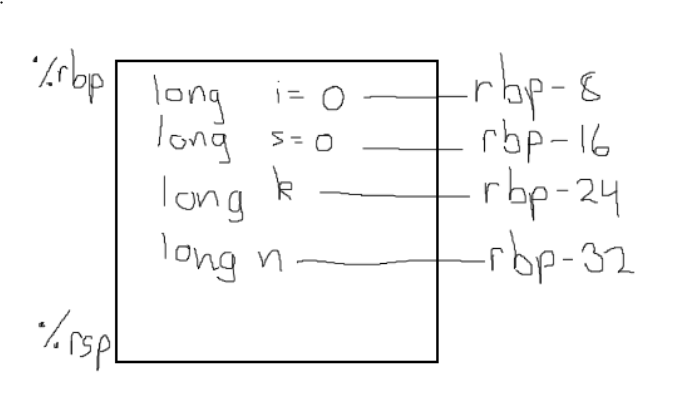 %rbp
long i = 0 rbp-8
long s = 0 rbp-16
long k rbp-24
long n rbp-32
%rsp